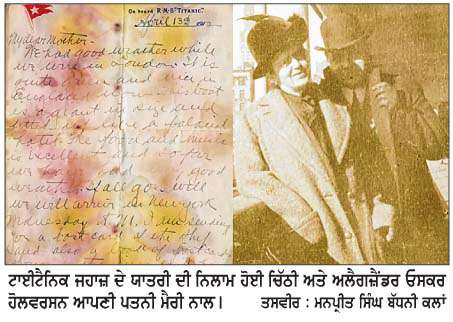 On board R·M·S "TITANIC".
April 13th 1912
My dear Mother-
We had good weather while
we were in London. It is
quite green and nice in
England now. This boat
is a giant in size and
fitted up like a
hotel. The food and music
is excellent and so far
we have had good
weather. If all goes well
we will arrive in New York
Wednesday A.M. I am sending
you a post card of the ship
ਟਾਈਟੈਨਿਕ ਜਹਾਜ਼ ਦੇ ਯਾਤਰੀ ਦੀ ਨਿਲਾਮ ਹੋਈ ਚਿੱਠੀ ਅਤੇ ਅਲੈਗਜ਼ੈਂਡਰ ਓਸਕਰ
ਹੋਲਵਰਸਨ ਆਪਣੀ ਪਤਨੀ ਮੈਰੀ ਨਾਲ। ਤਸਵੀਰ : ਮਨਪ੍ਰੀਤ ਸਿੰਘ ਬੱਧਨੀ ਕਲਾਂ